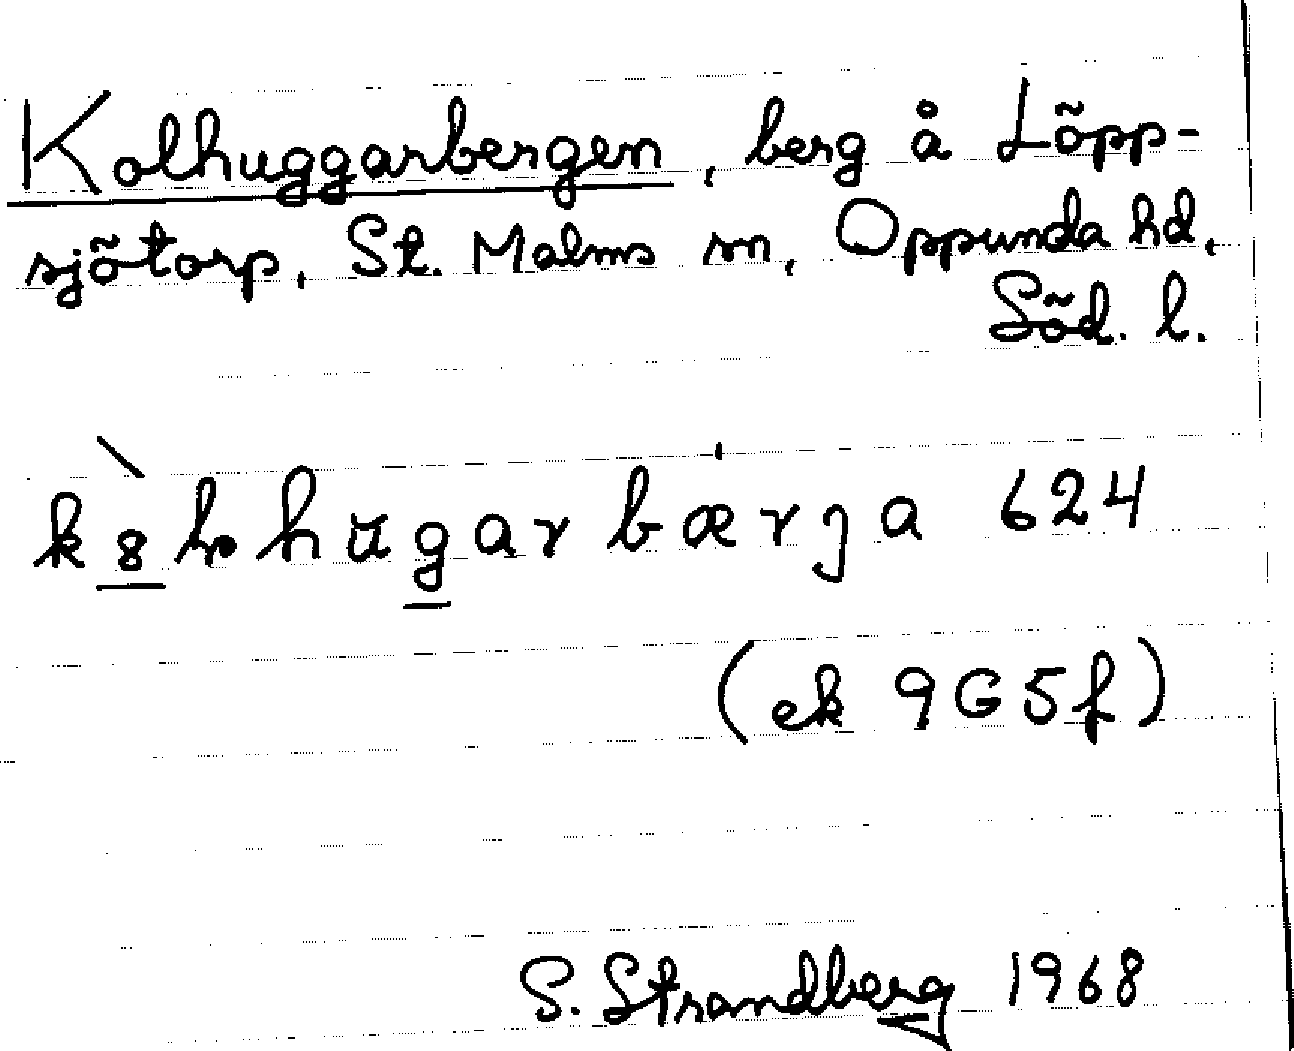 Kolhuggarbergen, berg å Löpp-
sjötorp, St. Malms sn, Oppunda hd,
Söd. l.
624
(ek 9G5f)
S. Strandberg 1968